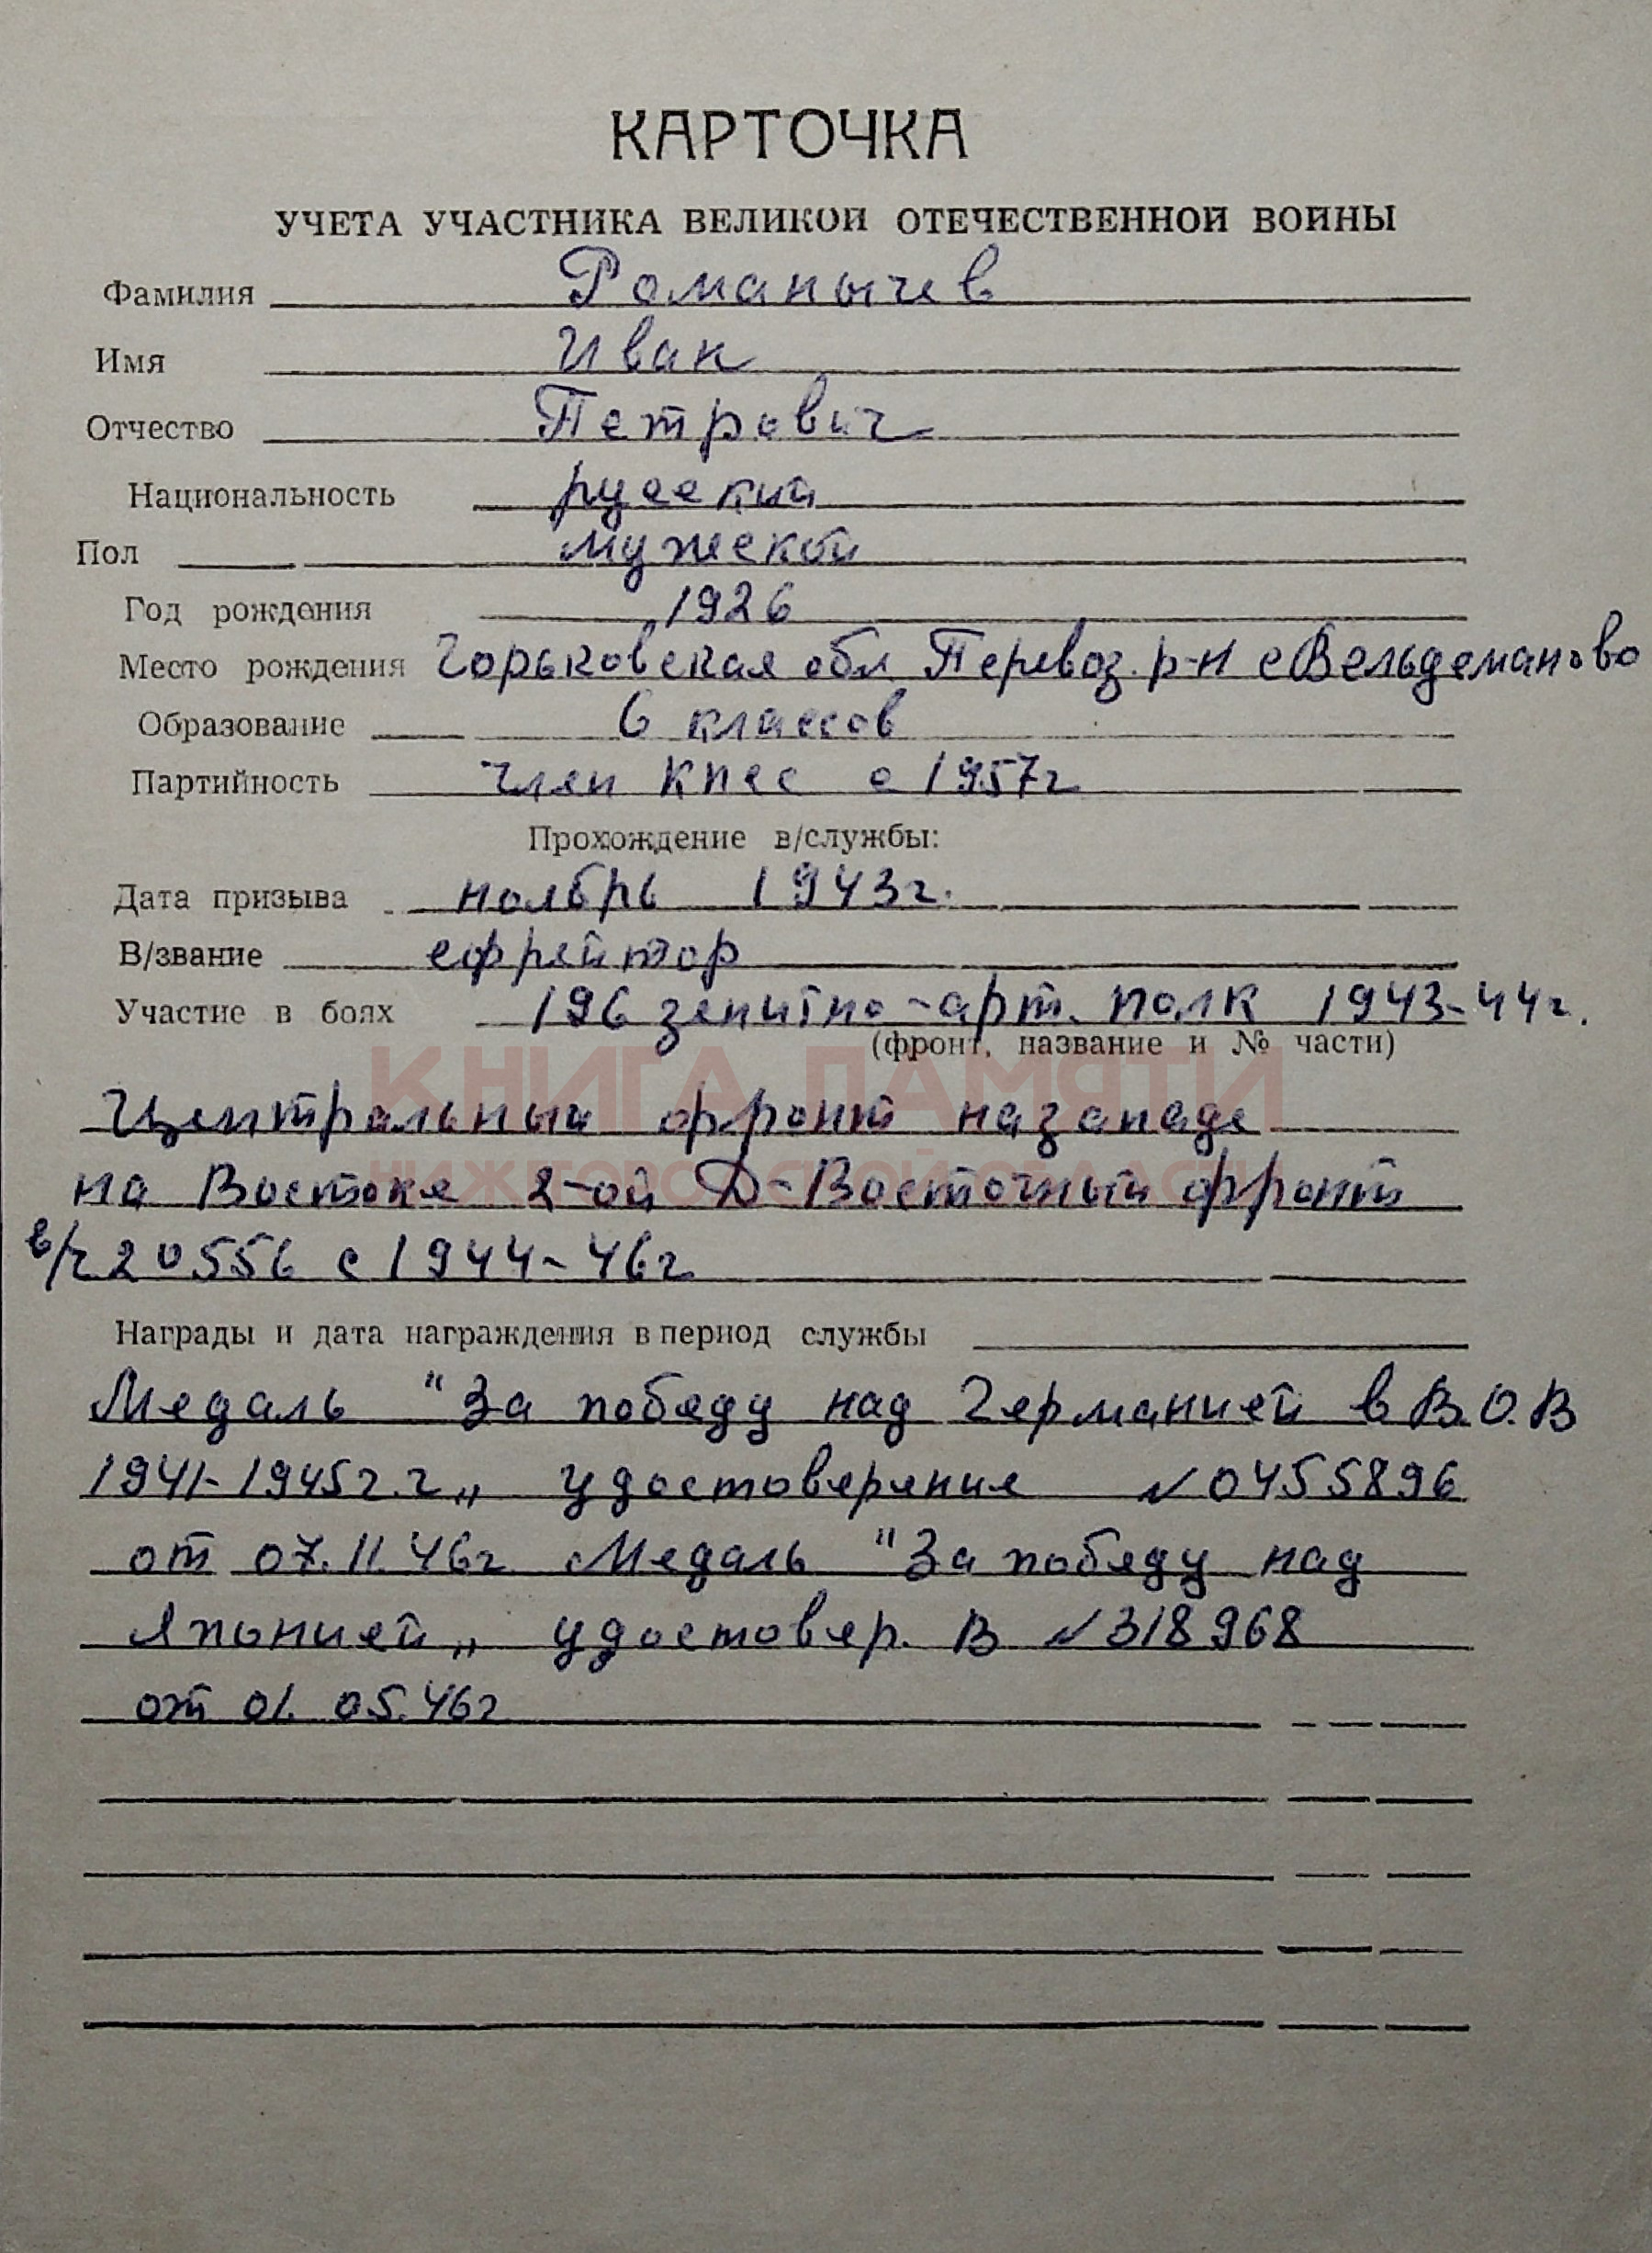 КАРТОЧКА
УЧЕТА УЧАСТНИКА ВЕЛИКОЙ ОТЕЧЕСТВЕННОЙ ВОЙНЫ
Фамилия Романычев
Имя Иван
Отчество Петрович
Национальность русский
Пол мужской
Год рождения 1926
Место рождения Горьковская обл Перевоз. р-н с Вельдеманово
Образование 6 классов
Партийность член КПСС с 1957г
Прохождение в/службы:
Дата призыва ноябрь 1943г.
В/звание ефрейтор
Участие в боях 196 зенитно-арт. полк 1943-44г.
(фронт, название и № части)
КНИГА ПАМЯТИ
Центральный фронт на западе
НИЖЕГОРОДСКОЙ ОБЛАСТИ
на Востоке 2-ой Д-Восточный фронт
в/ч 20556 с 1944-46г
Награды и дата награждения в период службы
Медаль "За победу над Германией в В.О.В
1941-1945г.г„ удостоверение №0455896
от 07.11.46г Медаль "За победу над
Японией„ удостовер. В №318968
от 01.05.46г